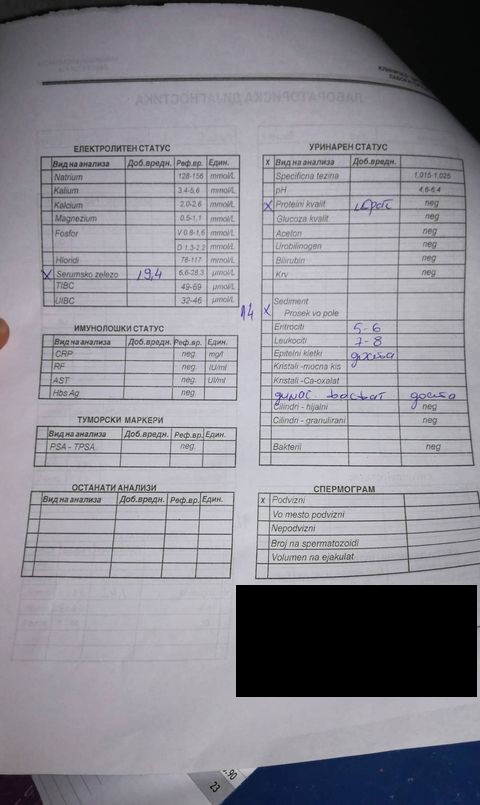 ЕЛЕКТРОЛИТЕН СТАТУС
Вид на анализа Доб.вредн. Реф.вр. Един.
Natrium 128-156 mmol/L
Kalium 3.4-5,6 mmol/L
Kalcium 2.0-2,6 mmol/L
Magnezium 0.5-1,1 mmol/L
Fosfor V 0.8-1,6 mmol/L
D 1.3-2.2 mmol/L
Hloridi 78-117 mmol/L
X Serumsko zelezo 19,4 6,6-28,3 µmol/L
TIBC 49-69 µmol/L
UIBC 32-46 µmol/L
ИМУНОЛОШКИ СТАТУС
Вид на анализа Доб.вредн. Реф.вр. Един.
CRP neg. mg/l
RF neg. IU/ml
AST neg. UI/ml
Hbs Ag neg
ТУМОРСКИ МАРКЕРИ
Вид на анализа Доб.вредн. Реф.вр. Един.
PSA - TPSA neg.
ОСТАНАТИ АНАЛИЗИ
Вид на анализа Доб.вредн. Реф.вр. Един.
УРИНАРЕН СТАТУС
X Вид на анализа Доб.вредн.
Specificna tezina 1,015-1,025
pH 4,6-6.4
X Proteini kvalit neg
Glucoza kvalit neg
Aceton neg
Urobilinogen neg
Bilirubin neg
Krv neg
Sediment
14 X Prosek vo pole
Eritrociti 5-6
Leukociti 7-8
Epitelni kletki доста
Kristali -mocna kis
Kristali -Ca-oxalat
доста
Cilindri - hijalni neg
Cilindri - granulirani neg
Bakterii neg
СПЕРМОГРАМ
X Podvizni
Vo mesto podvizni
Nepodvizni
Broj na spermatozoidi
Volumen na ejakulat
.90
23